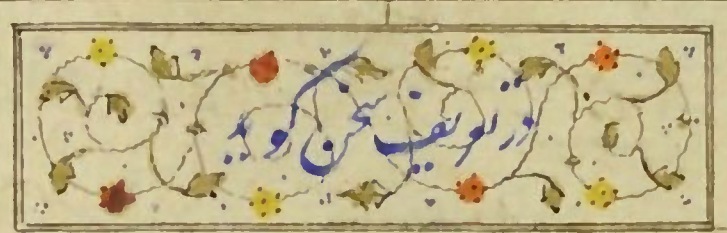 در تعریف سخن گوید